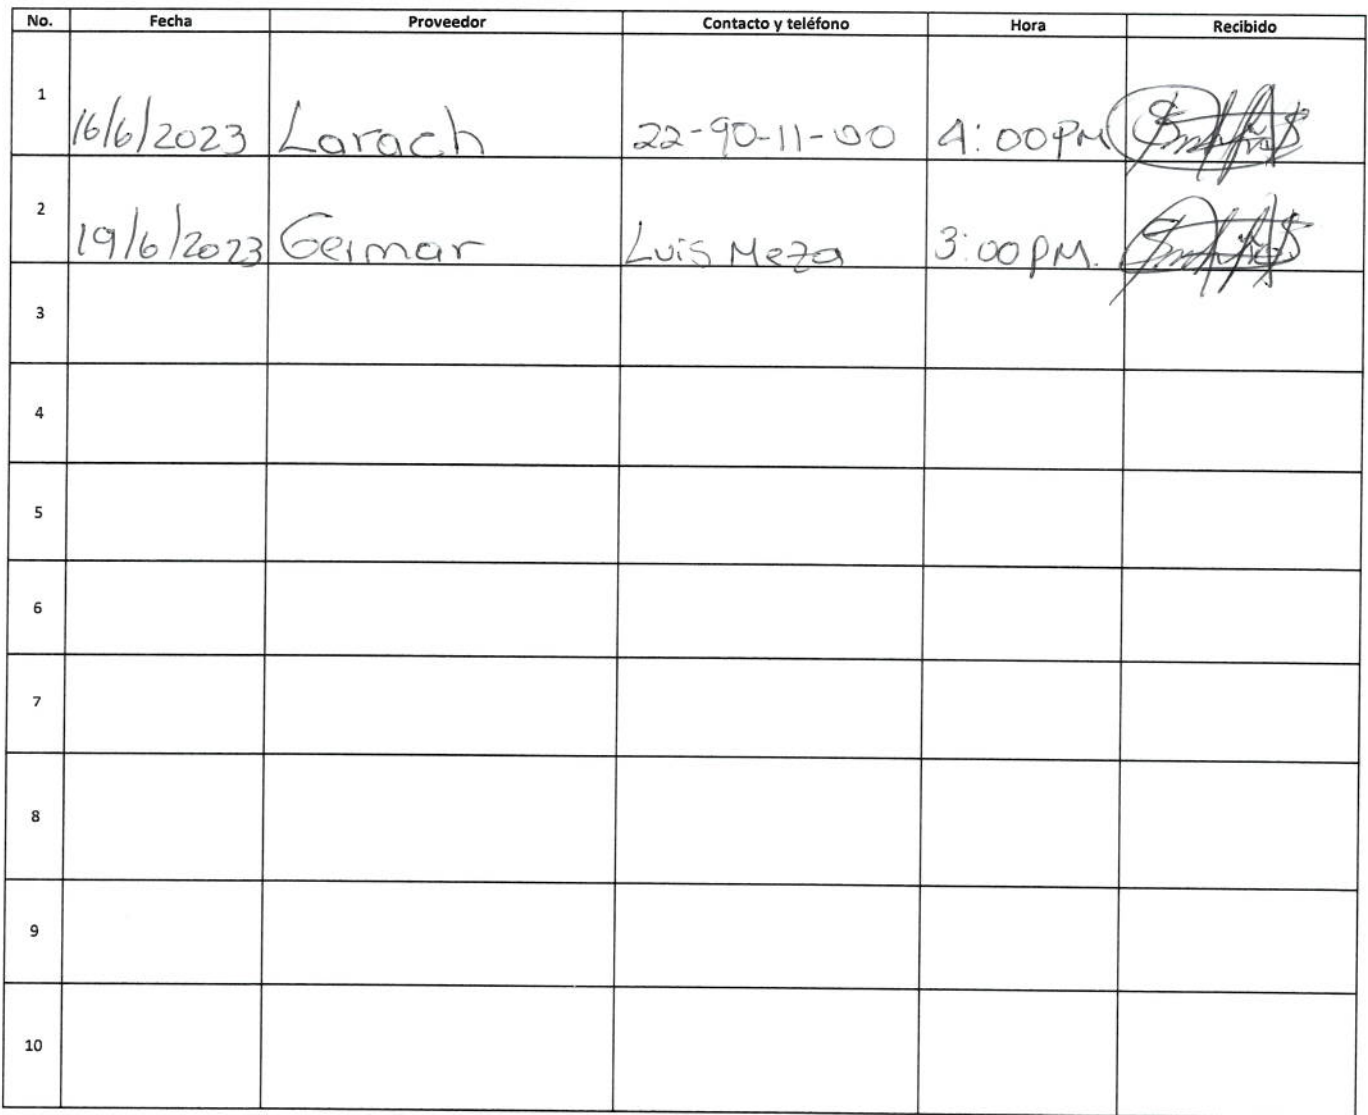 No. Fecha Proveedor Contacto y teléfono Hora Recibido
1 16/6/2023 Larach 22-90-11-00 4:00PM
2 19/6/2023 Geimar Luis Meza 3:00PM.
3
4
5
6
7
8
9
10